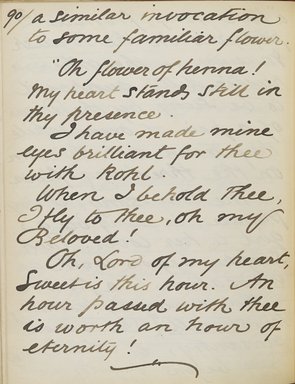 90/ a similar invocation
to some familiar flower.
"Oh flower of henna!
My heart stands still in
thy presence.
I have made mine
eyes brilliant for thee
with Kohl.
When I behold thee,
I fly to thee, oh my
Beloved!
Oh, Lord of my heart,
sweet is this hour. An
hour passed with thee
is worth an hour of
eternity!